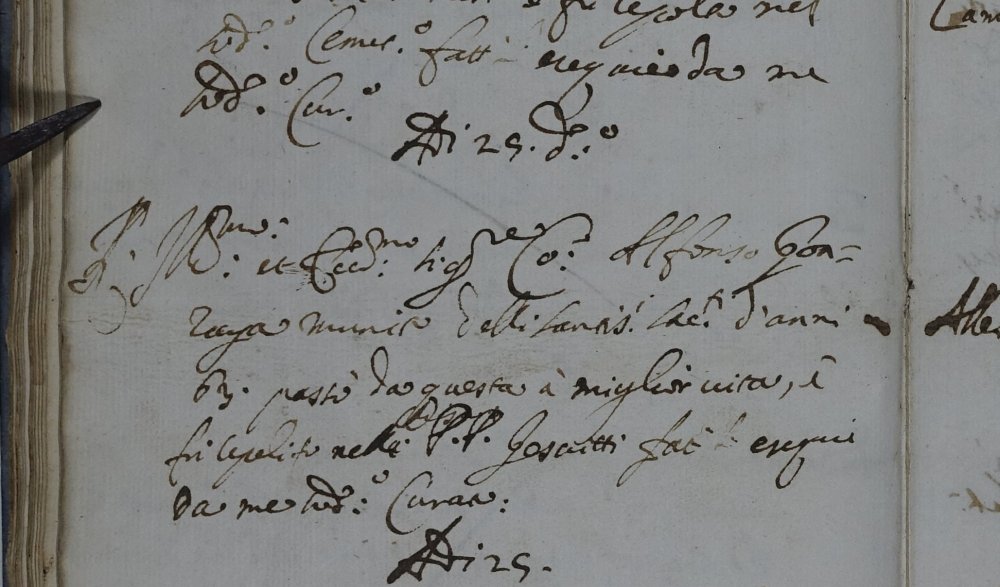 fù sepolta nel
sod.º Cemet.º fatt exequie da me
sod.º Cur.º
Adi 25. d.º
Ill.mo et Ecc.mo sig.re Co: Alfonso Gon-
zaga munito delli santis.i sac.ti d'anni
63. passò da questa à miglior vita, è
fù sepelito nelli P.P. Gesuitti fat exequie
da me sod.º Curato:
Adi 25.